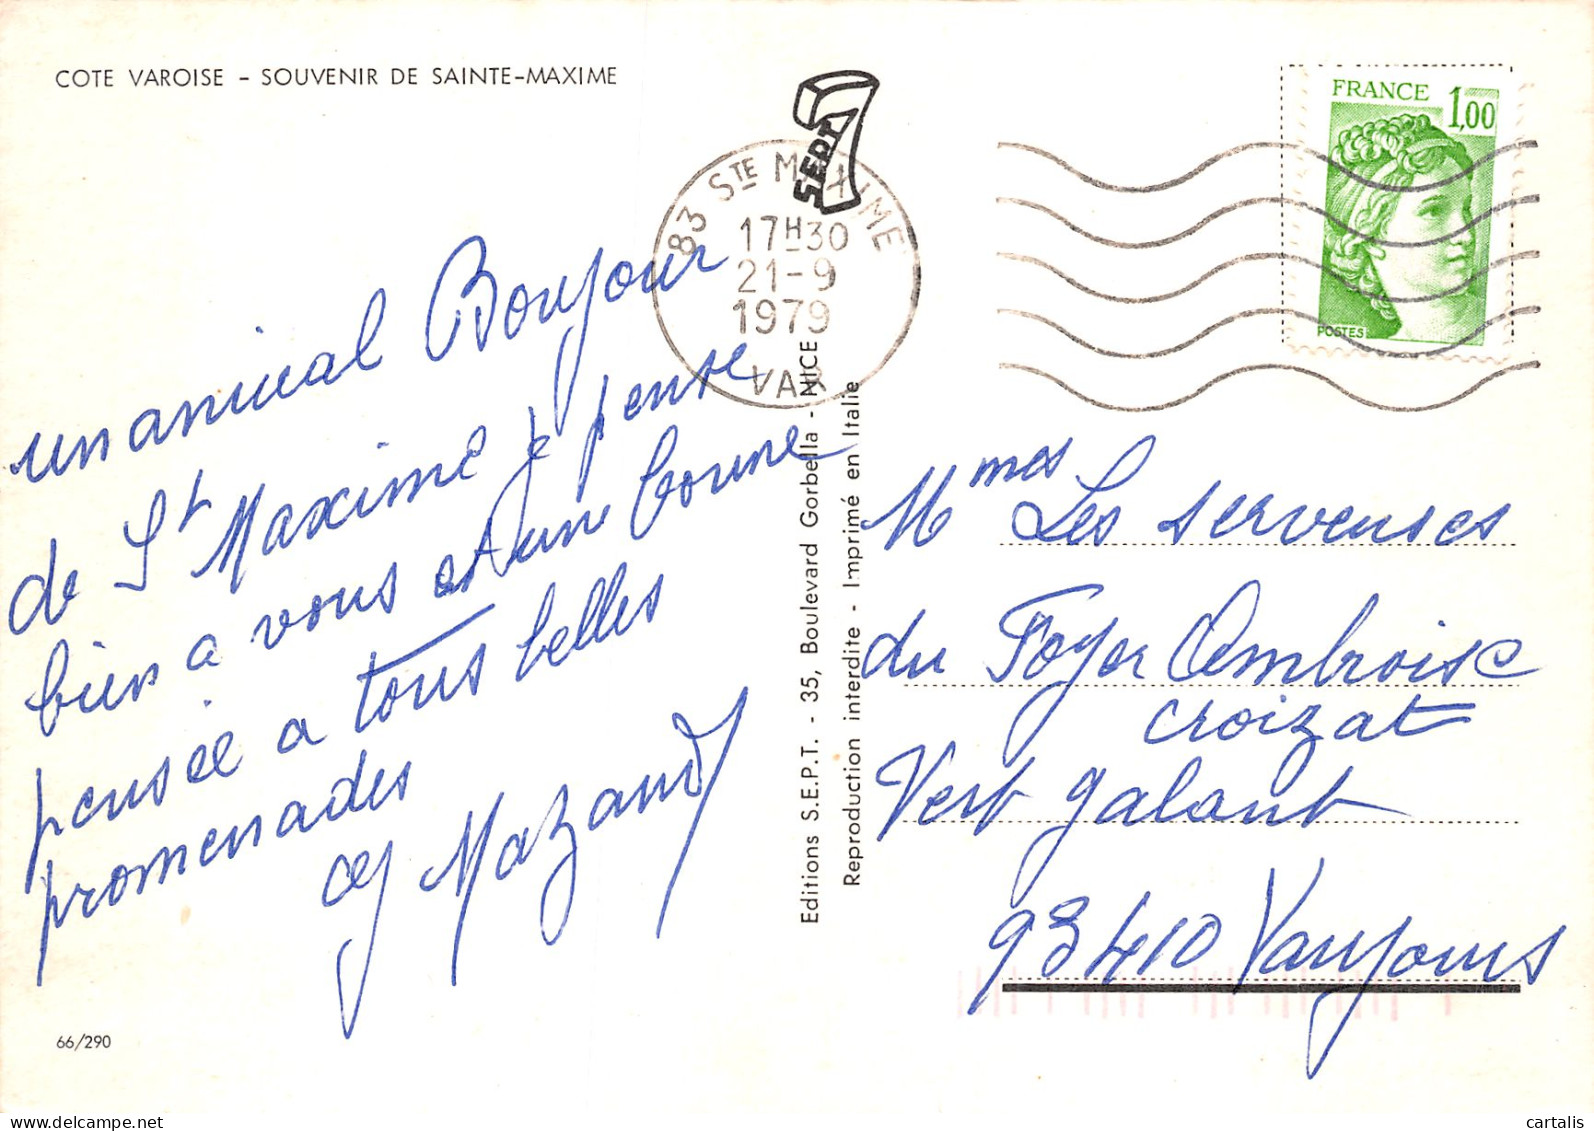 COTE VAROISE - SOUVENIR DE SAINTE-MAXIME
un amical Bonjour
de St Maxime je pense
bien a vous et une bonne
pensée a tous belles
promenades
Mazand
66/290
SEPT
83 STE MAXIME
17H30
21-9
1979
VAR
Editions S.E.P.T. - 35, Boulevard Gorbella - NICE
Reproduction interdite - Imprimé en Italie
FRANCE 1,00
POSTES
Mmes Les serveuses
du Foyer Ambroise
croizat
Vert galant
93410 Vaujours
cartalis
www.delcampe.net